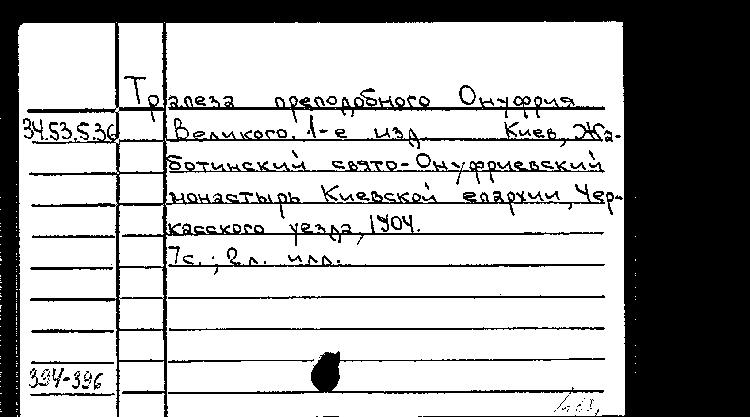 Трапеза преподобного Онуфрия
34.53.5.36 Великого. 1-е изд. Киев, Жа-
ботинский свято-Онуфриевский
монастырь Киевской епархии, Чер-
касского уезда, 1904.
7с.; 2л. илл.
394-396